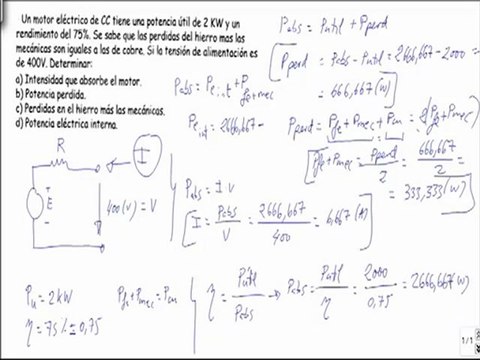 Un motor eléctrico de CC tiene una potencia útil de 2 KW y un
rendimiento del 75%. Se sabe que las perdidas del hierro mas las
mecánicas son iguales a las de cobre. Si la tensión de alimentación es
de 400V. Determinar:
a) Intensidad que absorbe el motor.
b) Potencia perdida.
c) Perdidas en el hierro más las mecánicas.
d) Potencia eléctrica interna.
Pabs = Pútil + Pperd
Pperd = Pabs - Pútil = 2666,667 - 2000 =
= 666,667 (W)
Pabs = Pe,int + Pfe+mec
Pe,int = 2666,667 -
Pperd = Pfe + Pmec + Pcu = 2(Pfe + Pmec)
Pfe + Pmec = Pperd / 2 = 666,667 / 2 =
= 333,333 (W)
R
I
E
400 (V) = V
Pabs = I V
I = Pabs / V = 2666,667 / 400 = 6,667 (A)
Pu = 2 kW
η = 75% = 0,75
Pfe + Pmec = Pcu
η = Pútil / Pabs → Pabs = Pútil / η = 2000 / 0,75 = 2666,667 (W)
1/1